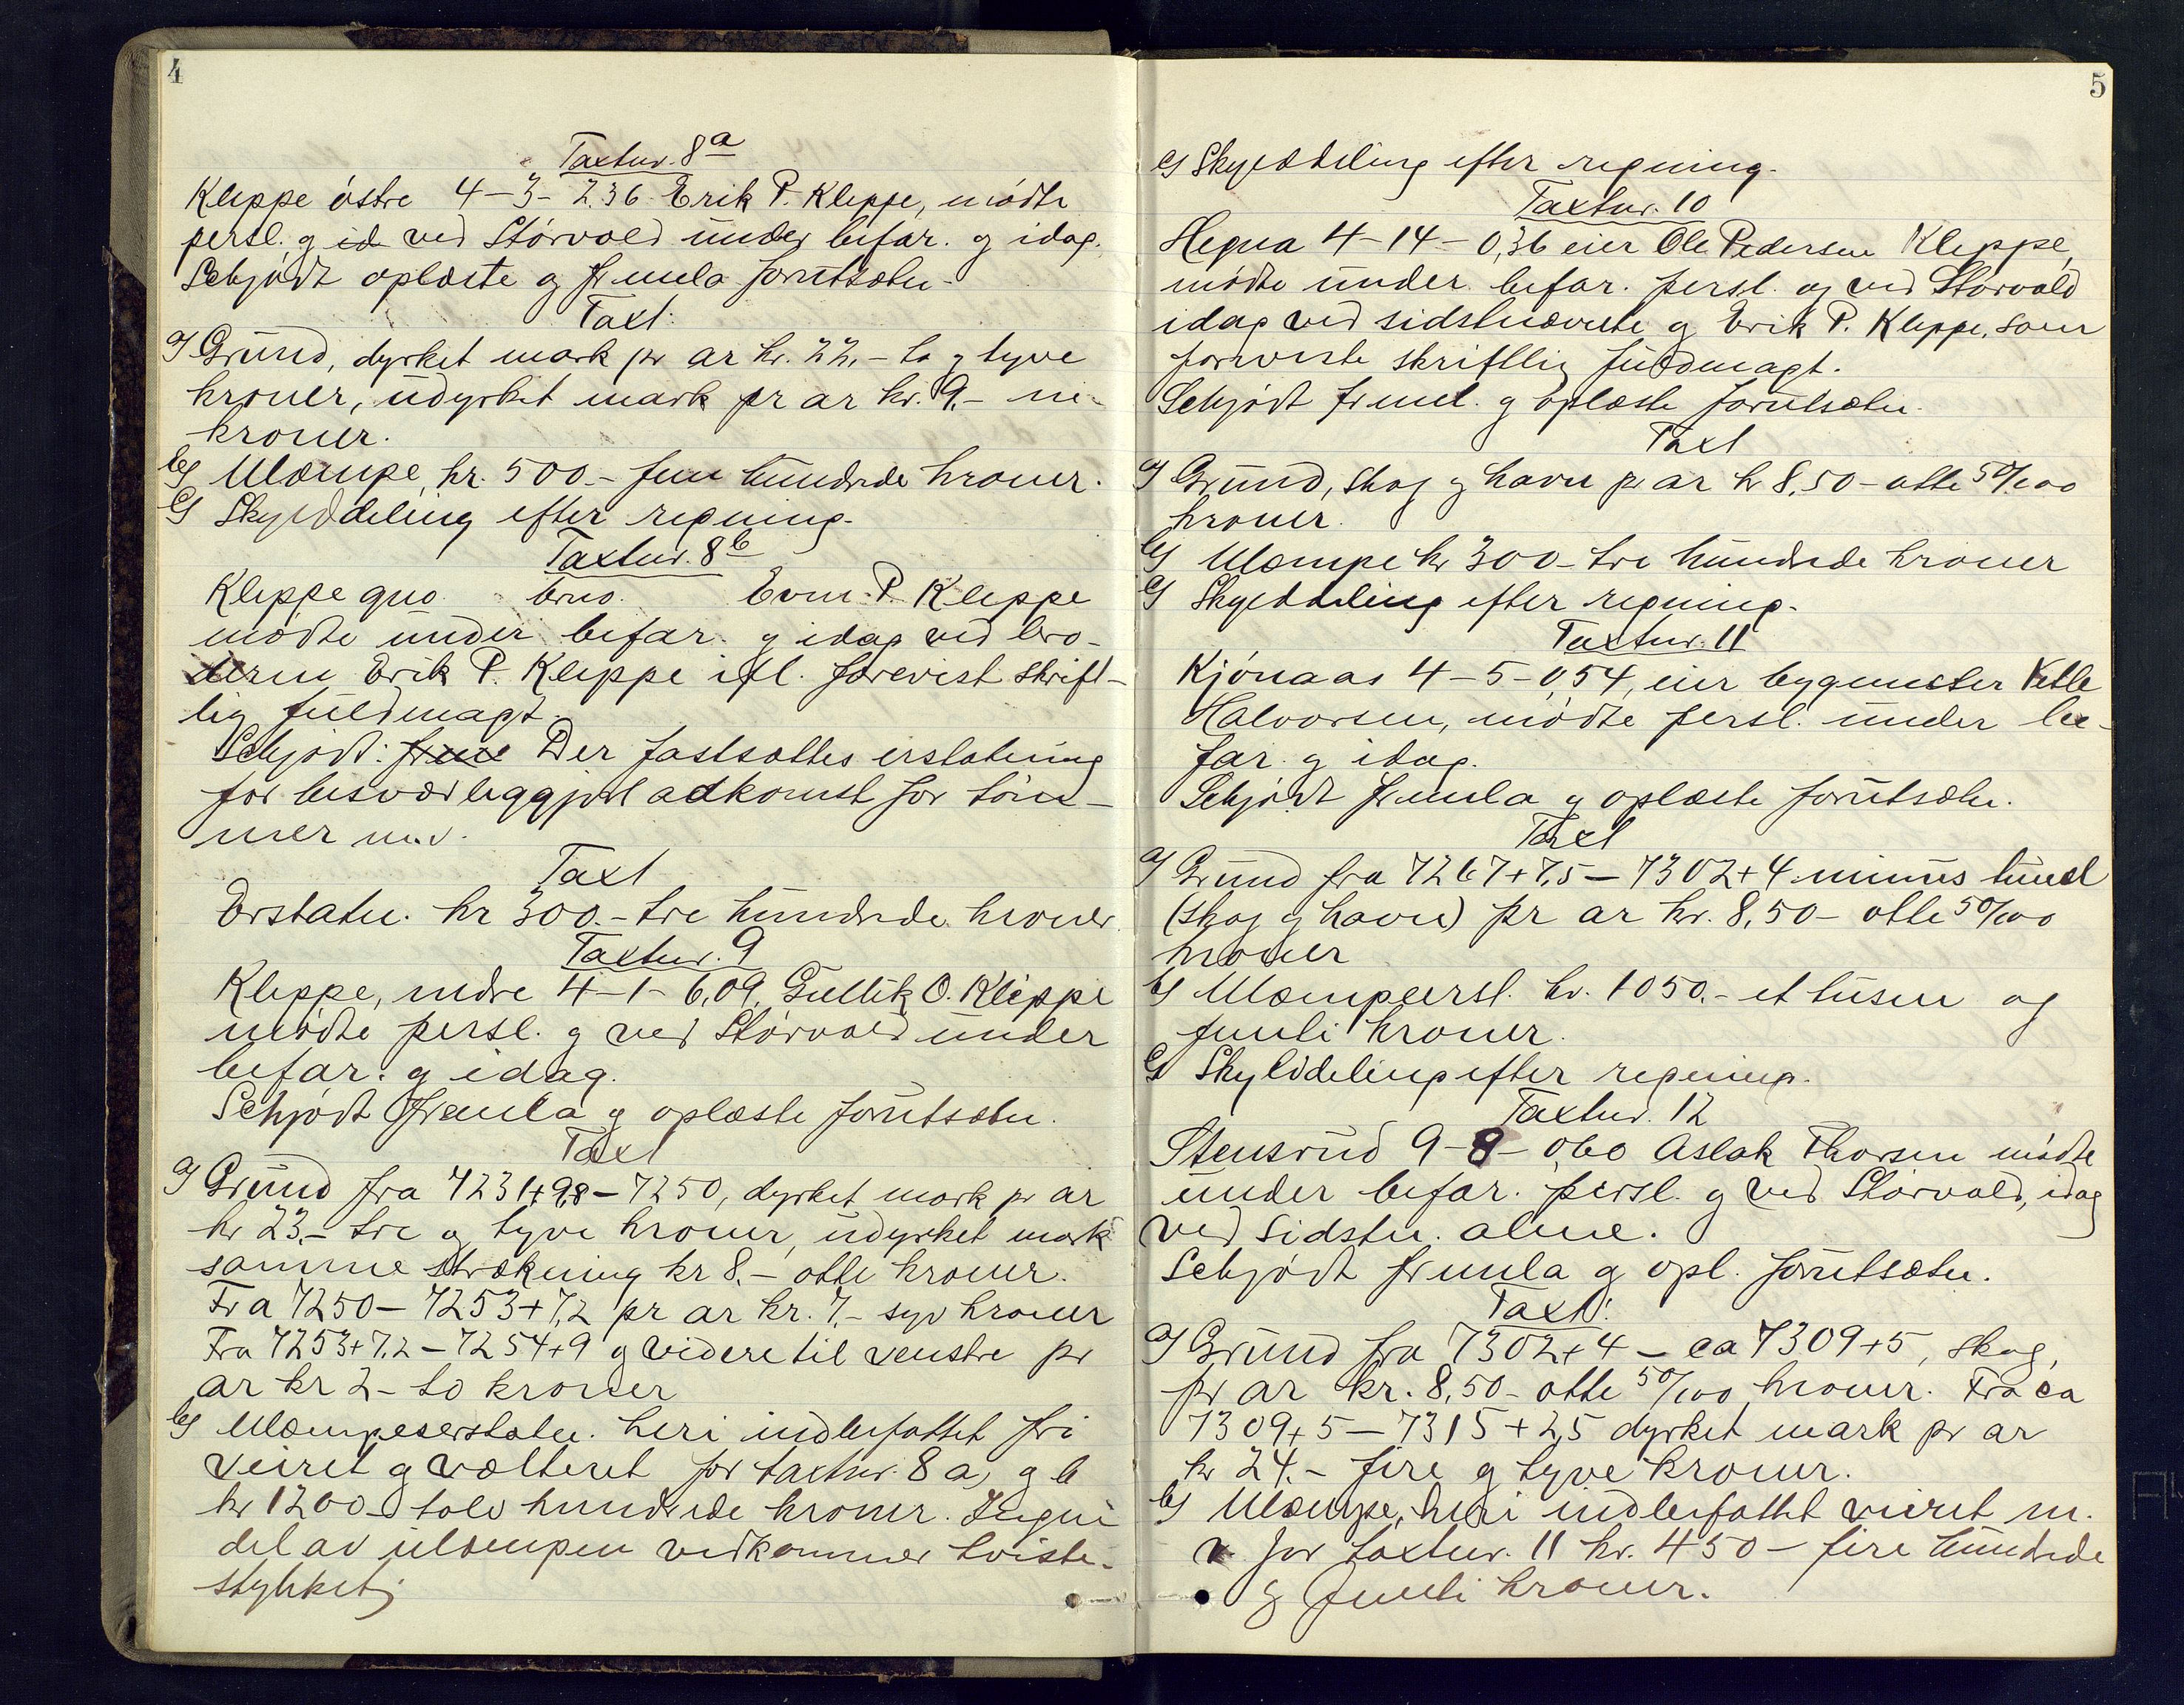 4
Taxtnr. 8a
Kleppe østre 4-3-2.36 Erik P. Kleppe, mødte
persl. og id ved Størvold under befar. og idag.
Schjødt oplæste og fremla forutsætn.
Taxt:
a) Grund, dyrket mark pr ar kr. 22,- to og tyve
kroner, udyrket mark pr ar kr. 9,- ni
kroner.
b) Ulæmpe, kr. 500.- fem hundrede kroner.
c) Skylddeling efter regning.
Taxtnr. 8b
Kleppe gno brno. Even P. Kleppe
mødte under befar. og idag ved bro-
deren Erik P. Kleppe ifl. forevist skrift-
lig fuldmagt.
Schjødt: frem Der fastsættes erstatning
for besværliggjort adkomst for tøm-
mer m.v.
Taxt
Erstatn. kr 300.- tre hundrede kroner.
Taxtnr. 9
Kleppe, nedre 4-1-6,09, Gullik O. Kleppe
mødte persl. og ved Størvold under
befar. og idag.
Schjødt fremla og oplæste forutsætn.
Taxt
a) Grund fra 7231+9,8-7250, dyrket mark pr ar
kr 23,- tre og tyve kroner, udyrket mark
samme strækning kr 8.- otte kroner.
Fra 7250-7253+7,2 pr ar kr. 7,- syv kroner
Fra 7253+7,2-7254+9 og videre til venstre pr
ar kr 2- to kroner
b) Ulæmpeserstatn. heri indbefattet fri
veiret og vælteret for taxtnr. 8 a, og b
kr 1200- tolv hundrede kroner. Ingen
del av ulæmpen vedkommer tviste-
stykket;
5
c) Skylddeling efter regning.
Taxtnr. 10
Hegna 4-14-0,36 eier Ole Pedersen Kleppe,
mødte under befar. persl. og ved Størvold
idag ved sidstnævnte og Erik P. Kleppe, som
foreviste skriftlig fuldmagt.
Schjødt freml. og oplæste forutsætn.
Taxt
a) Grund, skog og havn pr ar kr 8,50- otte 50/100
kroner.
b) Ulæmpe kr 300- tre hundrede kroner
c) Skylddeling efter regning.
Taxtnr. 11
Kjønaas 4-5-0,54, eier bygmester Ketle
Halvorsen, mødte persl. under be-
far. og idag.
Schjødt fremla og oplæste forutsætn.
Taxt
a) Grund fra 7267+7,5-7302+4 minus tunel
(skog og havn) pr ar kr. 8,50- otte 50/100
kroner
b) Ulæmpeerst. kr. 1050.- et tusen og
femti kroner.
c) Skylddeling efter regning.
Taxtnr. 12
Stensrud 9-8-0,60 Aslak Thorsen mødte
under befar. persl. og ved Størvold, idag
ved sidstn. alene.
Schjødt fremla og opl. forutsætn.
Taxt:
a) Grund fra 7302+4 - ca 7309+5, skog,
pr ar kr. 8,50- otte 50/100 kroner. Fra ca
7309+5-7315+2,5 dyrket mark pr ar
kr 24.- fire og tyve kroner.
b) Ulæmpe, heri indbefattet veiret m.
v for taxtnr. 11 kr. 450- fire hundrede
og femti kroner.